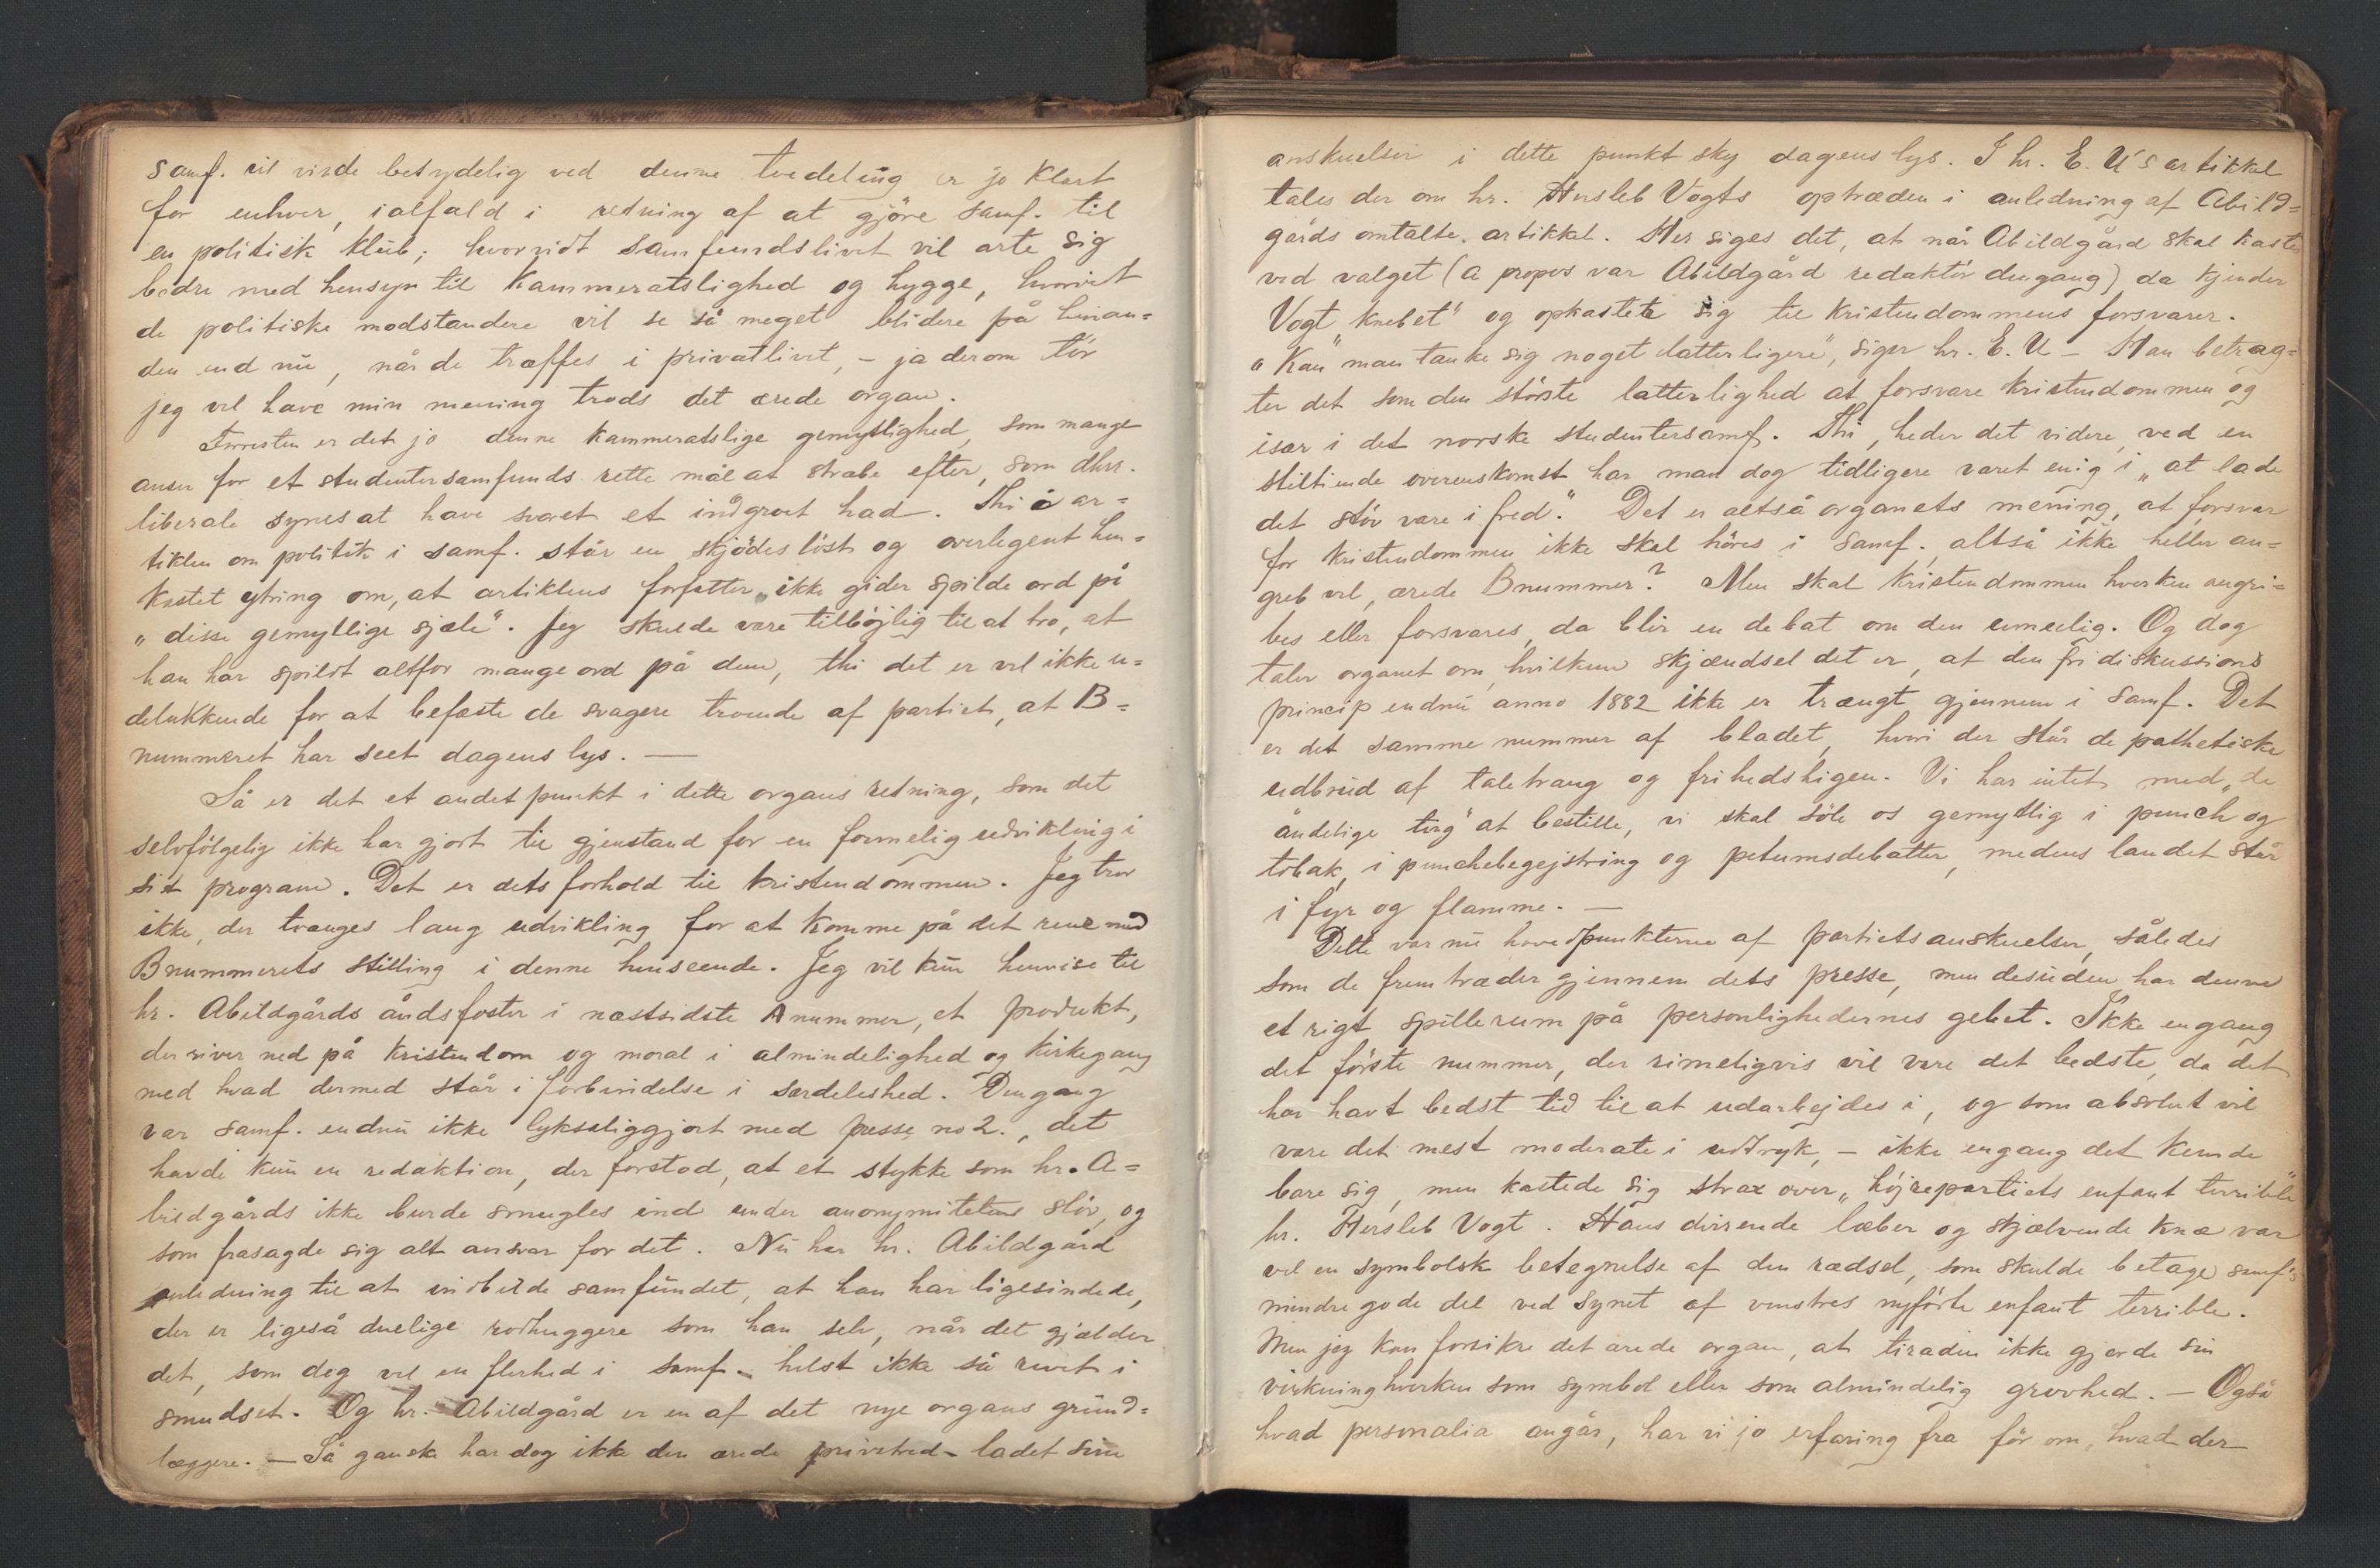 samf. vil vinde betydelig ved denne tvedeling er jo klart
for enhver, ialfald i retning af at gjöre samf. til
en politisk klub; hvorvidt samfundslivet vil arte sig
bedre med hensyn til kammeratslighed og hygge, hvorvidt
de politiske modstandere vil se så meget blidere på hinan=
den end nu, når de træffes i privatlivet, – ja derom tör
jeg vel have min mening trods det ærede organ.
Forresten er det jo denne kammeratslige gemytlighed, som mange
anser for et studentersamfunds rette mål at stræbe efter, som dhrr.
liberale synes at have svoret et indgroet had. Thi i ar=
tiklen om politik i samf. står en skjödeslöst og overlegent hen=
kastet ytring om, at artiklens forfatter ikke gider spilde ord på
„disse gemytlige sjæle“. Jeg skulde være tilböjlig til at tro, at
han har spildt altfor mange ord på dem, thi det er vel ikke u=
delukkende for at befæste de svagere troende af partiet, at B=
nummeret har seet dagens lys. —
Så er det et andet punkt i dette organs retning, som det
selvfölgelig ikke har gjort til gjenstand for en formelig udvikling i
sit program. Det er dets forhold til kristendommen. Jeg tror
ikke, der trænges lang udvikling for at komme på det rene med
Bnummerets stilling i denne henseende. Jeg vil kun henvise til
hr. Abildgårds åndsfoster i næstsidste Anummer, et produkt,
der river ned på kristendom og moral i almindelighed og kirkegang
med hvad dermed står i forbindelse i særdeleshed. Dengang
var samf. endnu ikke lyksaliggjort med presse no 2., det
havde kun en redaktion, der forstod, at et stykke som hr. A=
bildgårds ikke burde smugles ind under anonymitetens slör, og
som frasagde sig alt ansvar for det. Nu har hr. Abildgård
anledning til at indbilde samfundet, at han har ligesindede,
der er ligeså duelige rodhuggere som han selv, når det gjælder
det, som dog vel en flerhed i samf. helst ikke så revet i
smudset. Og hr. Abildgård er en af det nye organs grund=
læggere. — Så ganske har dog ikke den ærede ladet sine
anskuelser i dette punkt sky dagens lys. I hr. E. U's artikkel
tales der om hr. Hersleb Vogts optræden i anledning af Abild=
gårds omtalte artikkel. Her siges det, at når Abildgård skal kastes
ved valget (a propos var Abildgård redaktör dengang), da kjender
Vogt „knebet“ og opkastete sig til kristendommens forsvarer.
„Kan man tænke sig noget latterligere“, siger hr. E. U – Han betrag=
ter det som den störste latterlighed at forsvare kristendommen og
især i det norske studentersamf. Thi, heder det videre, ved en
stiltiende overenskomst har man dog tidligere været enig i „at lade
det stöv være i fred“. Det er altså organets mening, at forsvar
for kristendommen ikke skal höres i samf., altså ikke heller an=
greb vel, ærede Bnummer? Men skal kristendommen hverken angri=
bes eller forsvares, da blir en debat om den umulig. Og dog
taler organet om, hvilken skjændsel det er, at den fri diskussions
princip endnu anno 1882 ikke er trængt gjennem i samf. Det
er det samme nummer af bladet, hvori der står de pathetiske
udbrud af taletrang og frihedshigen. Vi har intet med „de
åndelige ting“ at bestille, vi skal söle os gemytlig i punch og
tobak, i punchebegejstring og petumsdebatter, medens landet står
i fyr og flamme. —
Dette var nu hovedpunkterne af partiets anskuelser, således
som de fremtræder gjennem dets presse, men desuden har denne
et rigt spillerum på personlighedernes gebet. Ikke engang
det förste nummer, der rimeligvis vil være det bedste, da det
har havt bedst tid til at udarbejdes i, og som absolut vil
være det mest moderate i udtryk, – ikke engang det kunde
bare sig, men kastede sig strax over „höjrepartiets enfant terrible“
hr. Hersleb Vogt. Hans dirrende læber og skjælvende knæ var
vel en symbolsk betegnelse af den rædsel, som skulde betage samf's
mindre gode del ved synet af venstres nyfödte enfant terrible.
Men jeg kan forsikre det ærede organ, at tiraden ikke gjorde sin
virkning hverken som symbol eller som almindelig grovhed. – Også
hvad personalia angår, har vi jo erfaring fra för om, hvad der